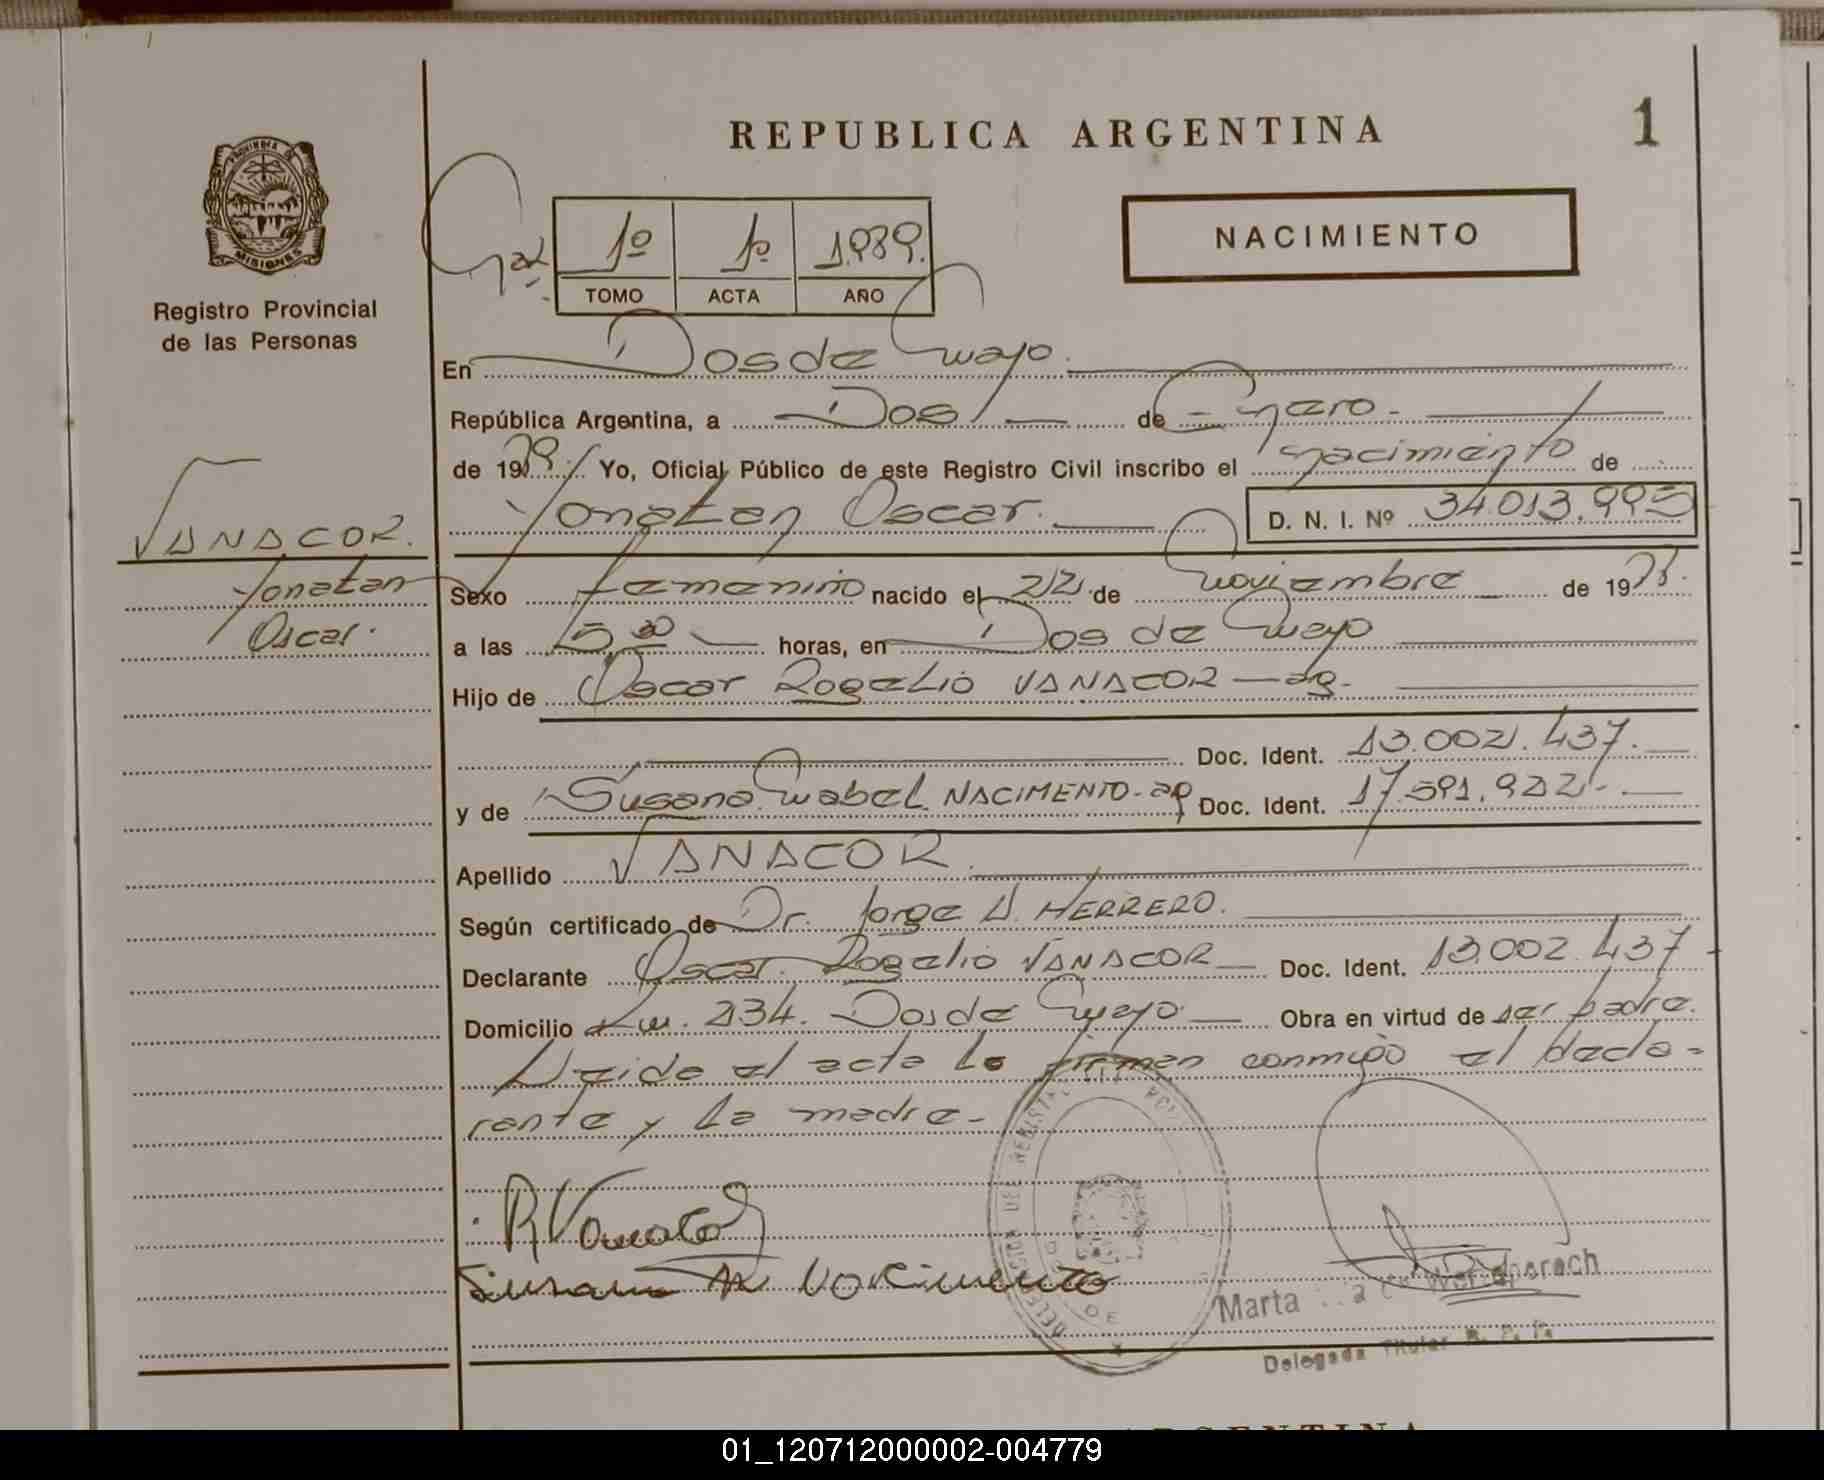 REPUBLICA ARGENTINA
1
PROVINCIA DE
MISIONES
Registro Provincial
de las Personas
1º 1º 1989.
TOMO ACTA AÑO
NACIMIENTO
En Dos de Mayo.
República Argentina, a Dos de Enero.
de 1989. Yo, Oficial Público de este Registro Civil inscribo el Nacimiento de
Yonatan Oscar. D. N. I. Nº 34.013.995
VANACOR.
Yonatan
Oscar.
Sexo femenino nacido el 22 de Noviembre de 1988.
a las 5,30 horas, en Dos de Mayo
Hijo de Oscar Rogelio VANACOR - arg.
Doc. Ident. 13.002.437.
y de Susana Mabel NACIMENTO - Doc. Ident. 17.591.922.
Apellido VANACOR.
Según certificado de Dr. Jorge A. HERRERO.
Declarante Oscar Rogelio VANACOR Doc. Ident. 13.002.437
Domicilio Km. 234. Dos de Mayo. Obra en virtud de ser padre.
Leida el acta la firman conmigo el decla-
rante y la madre.
R Vanacor
Susana M Nacimento
Marta
Delegada Titular R. P. P.
01_120712000002-004779